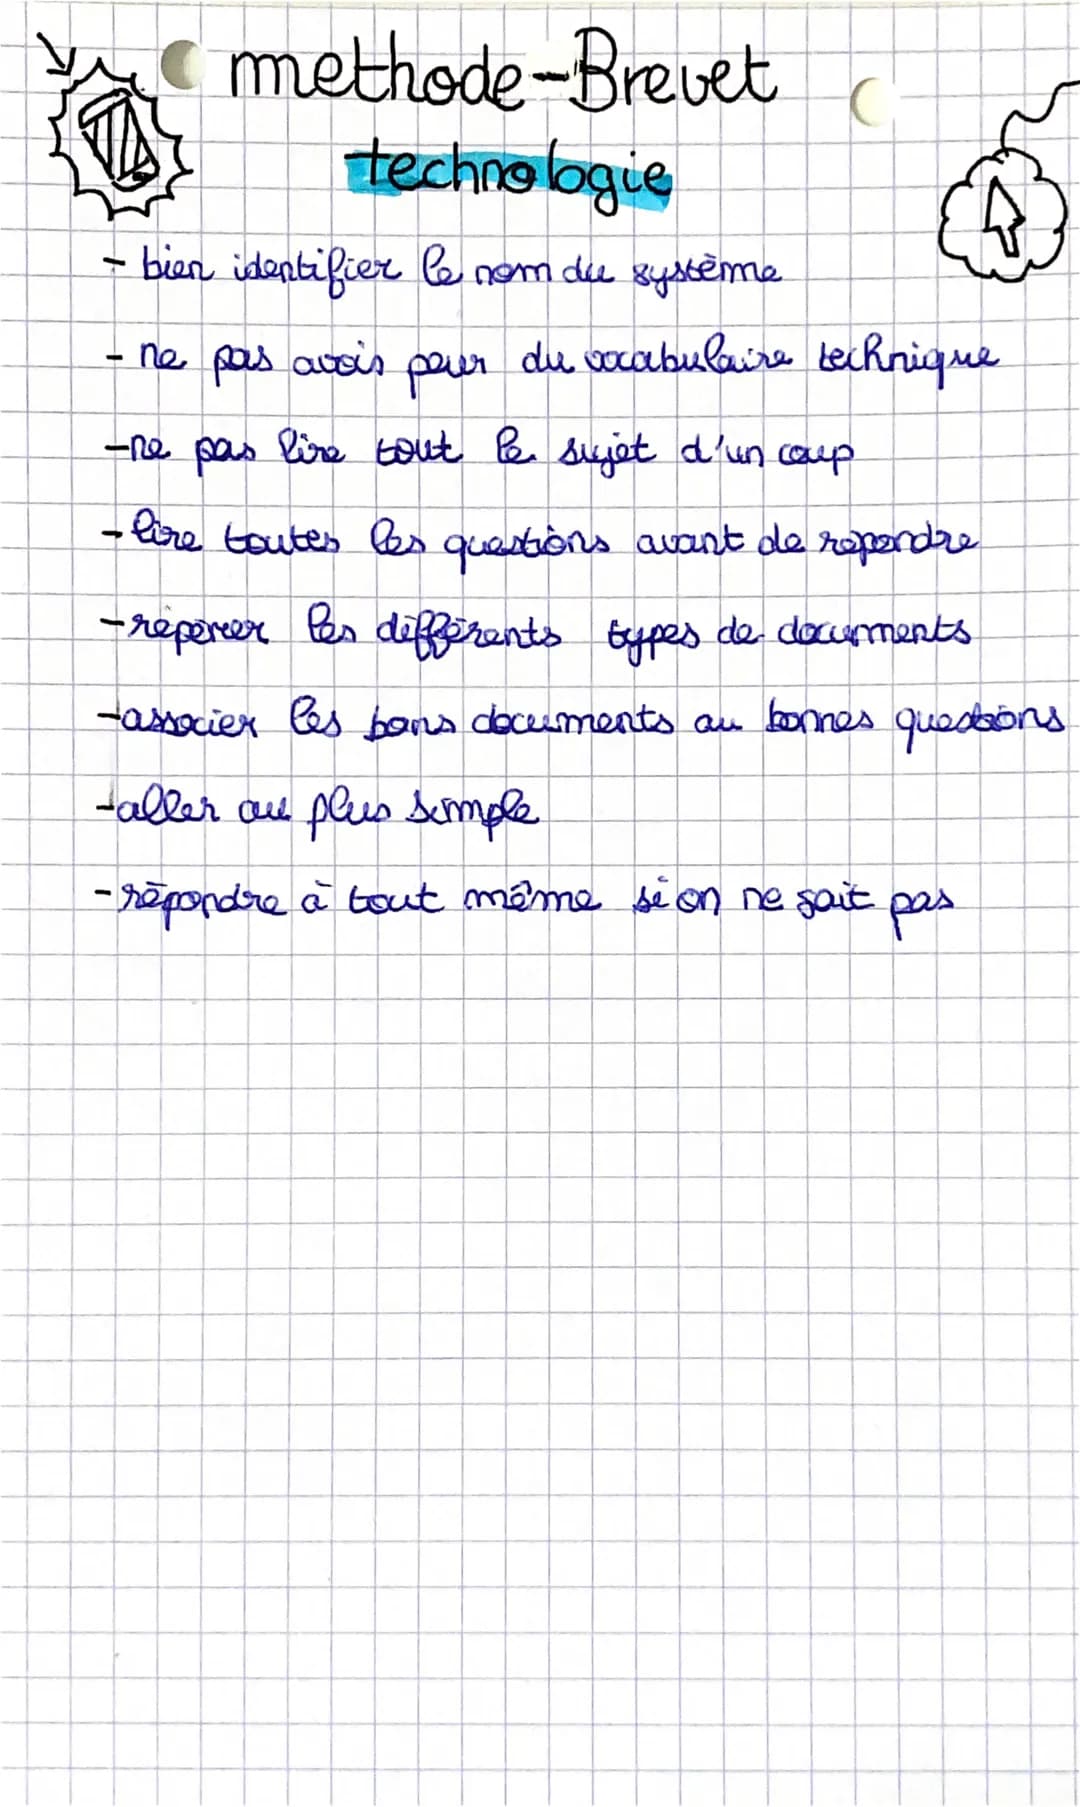 methode-Brevet
technologie
- bien identifier le nom du système
- ne pas avois peur du vocabulaire technique
- ne pas lire tout le sujet d'un coup
- lire toutes les questions avant de répondre
- répérer les différents types de documents
- associer les bons documents au bonnes questions
- aller au plus simple
- répondre à tout même si on ne sait pas